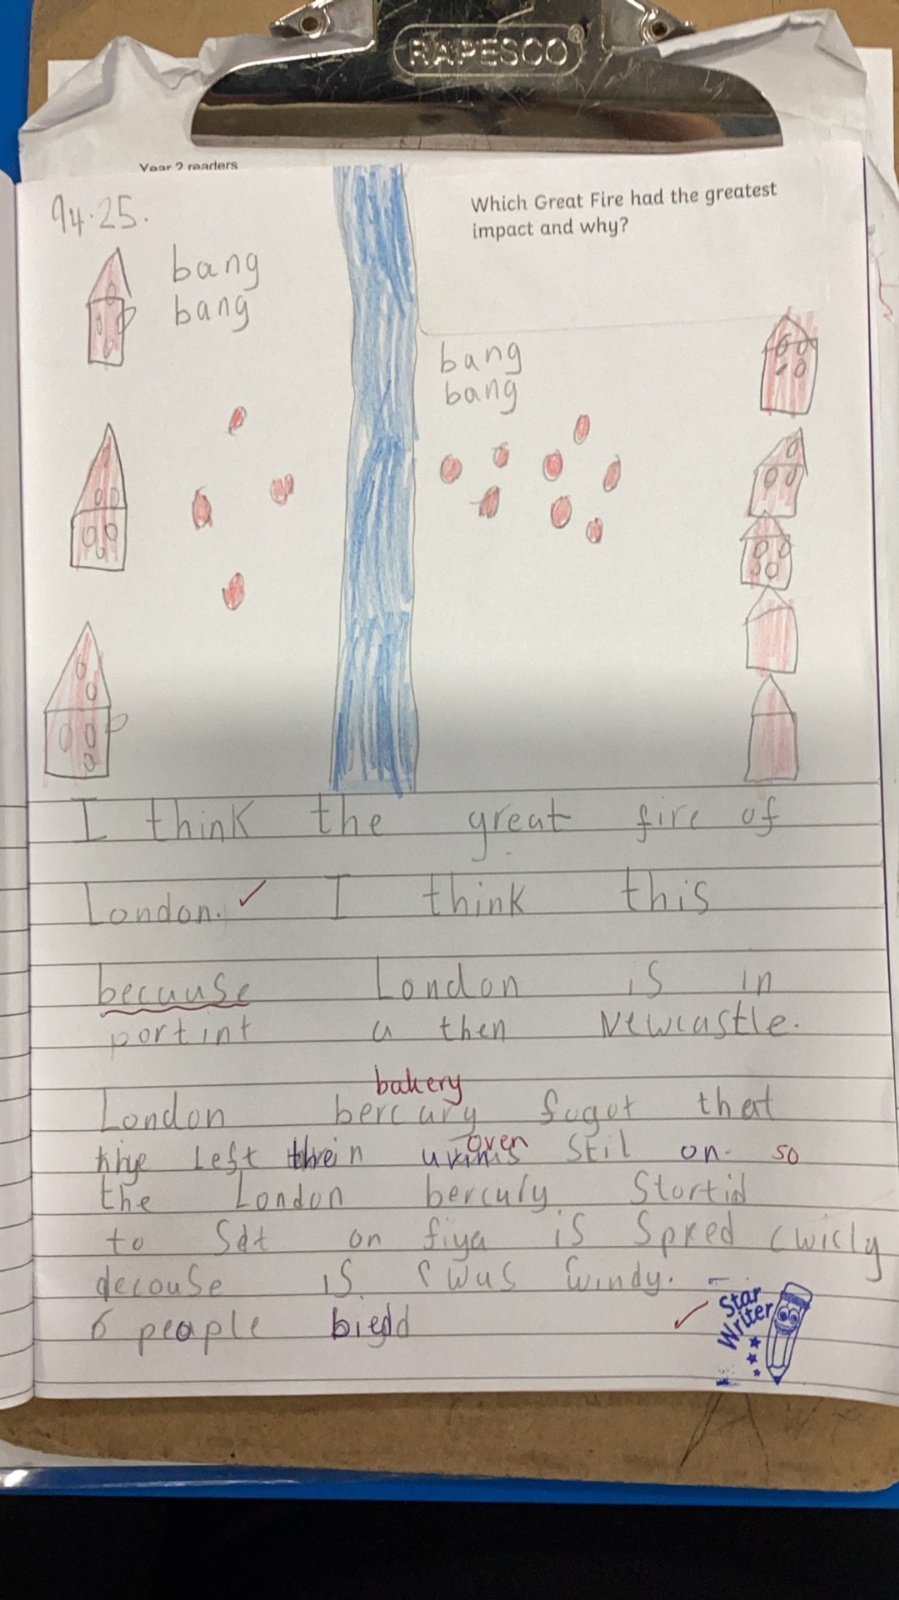 RAPESCO®
Year 2 readers
94.25.
Which Great Fire had the greatest
impact and why?
bang
bang
bang
bang
I think the great fire of
London. ✓ I think this
because London is in
portint a then Newcastle.
bakery
London bercury fogot that
oven
thye left thein uvims stil on. so
the London bercury Stortid
to Sat on fiya is Spred cwicly
decouse is. was windy.
6 people biedd ✓
Star
Writer